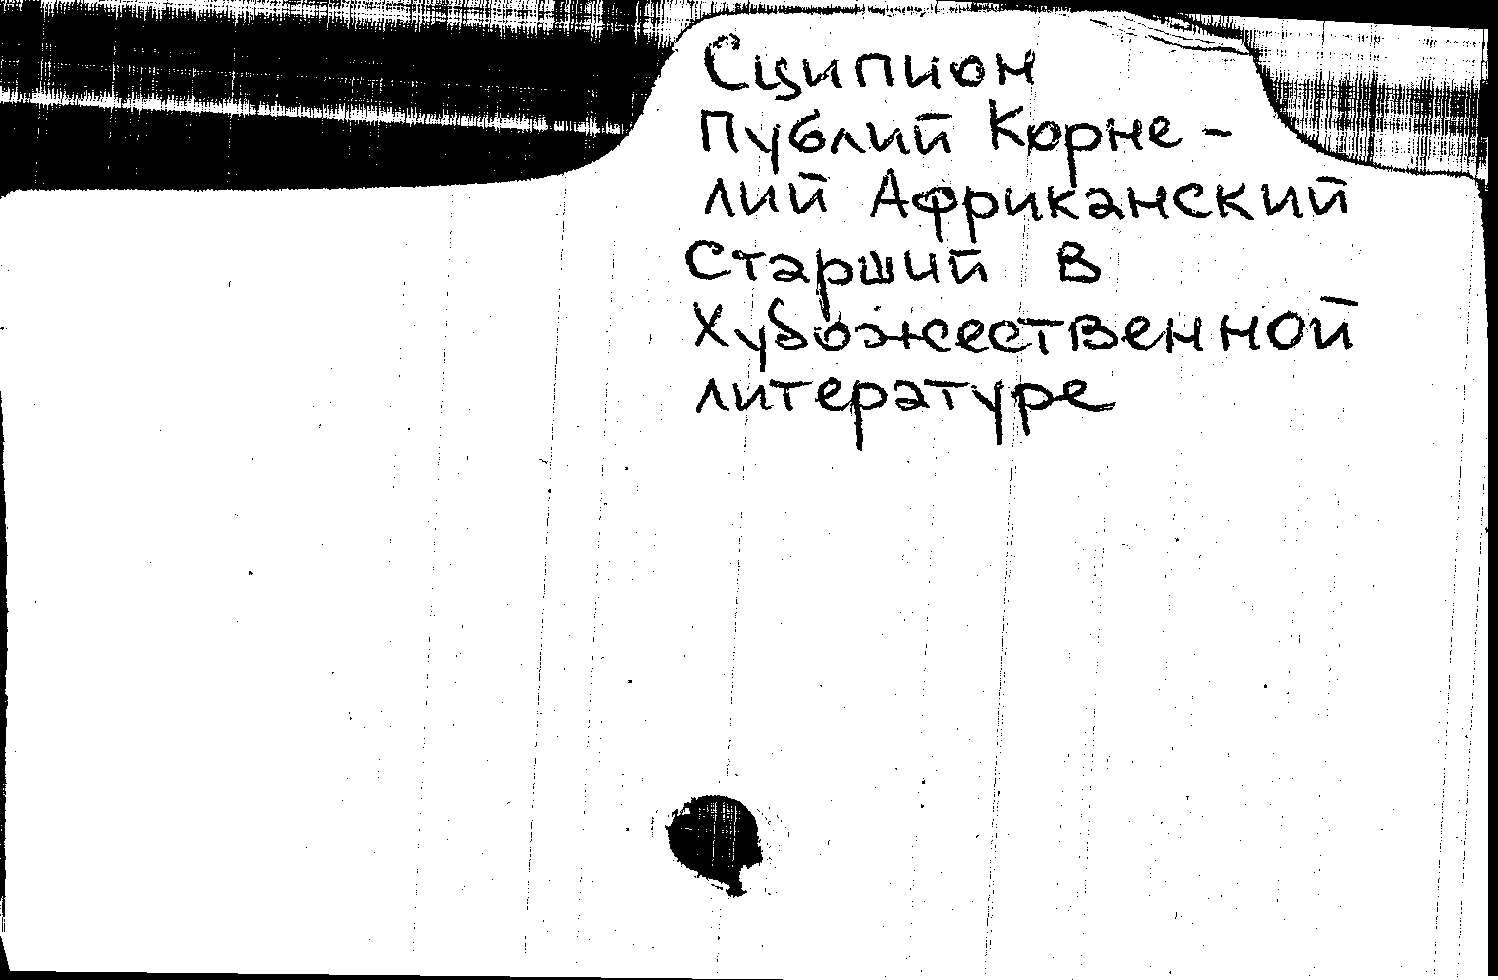 Сципион
Публий Корне-
лий Африканский
Старший в
художественной
литературе